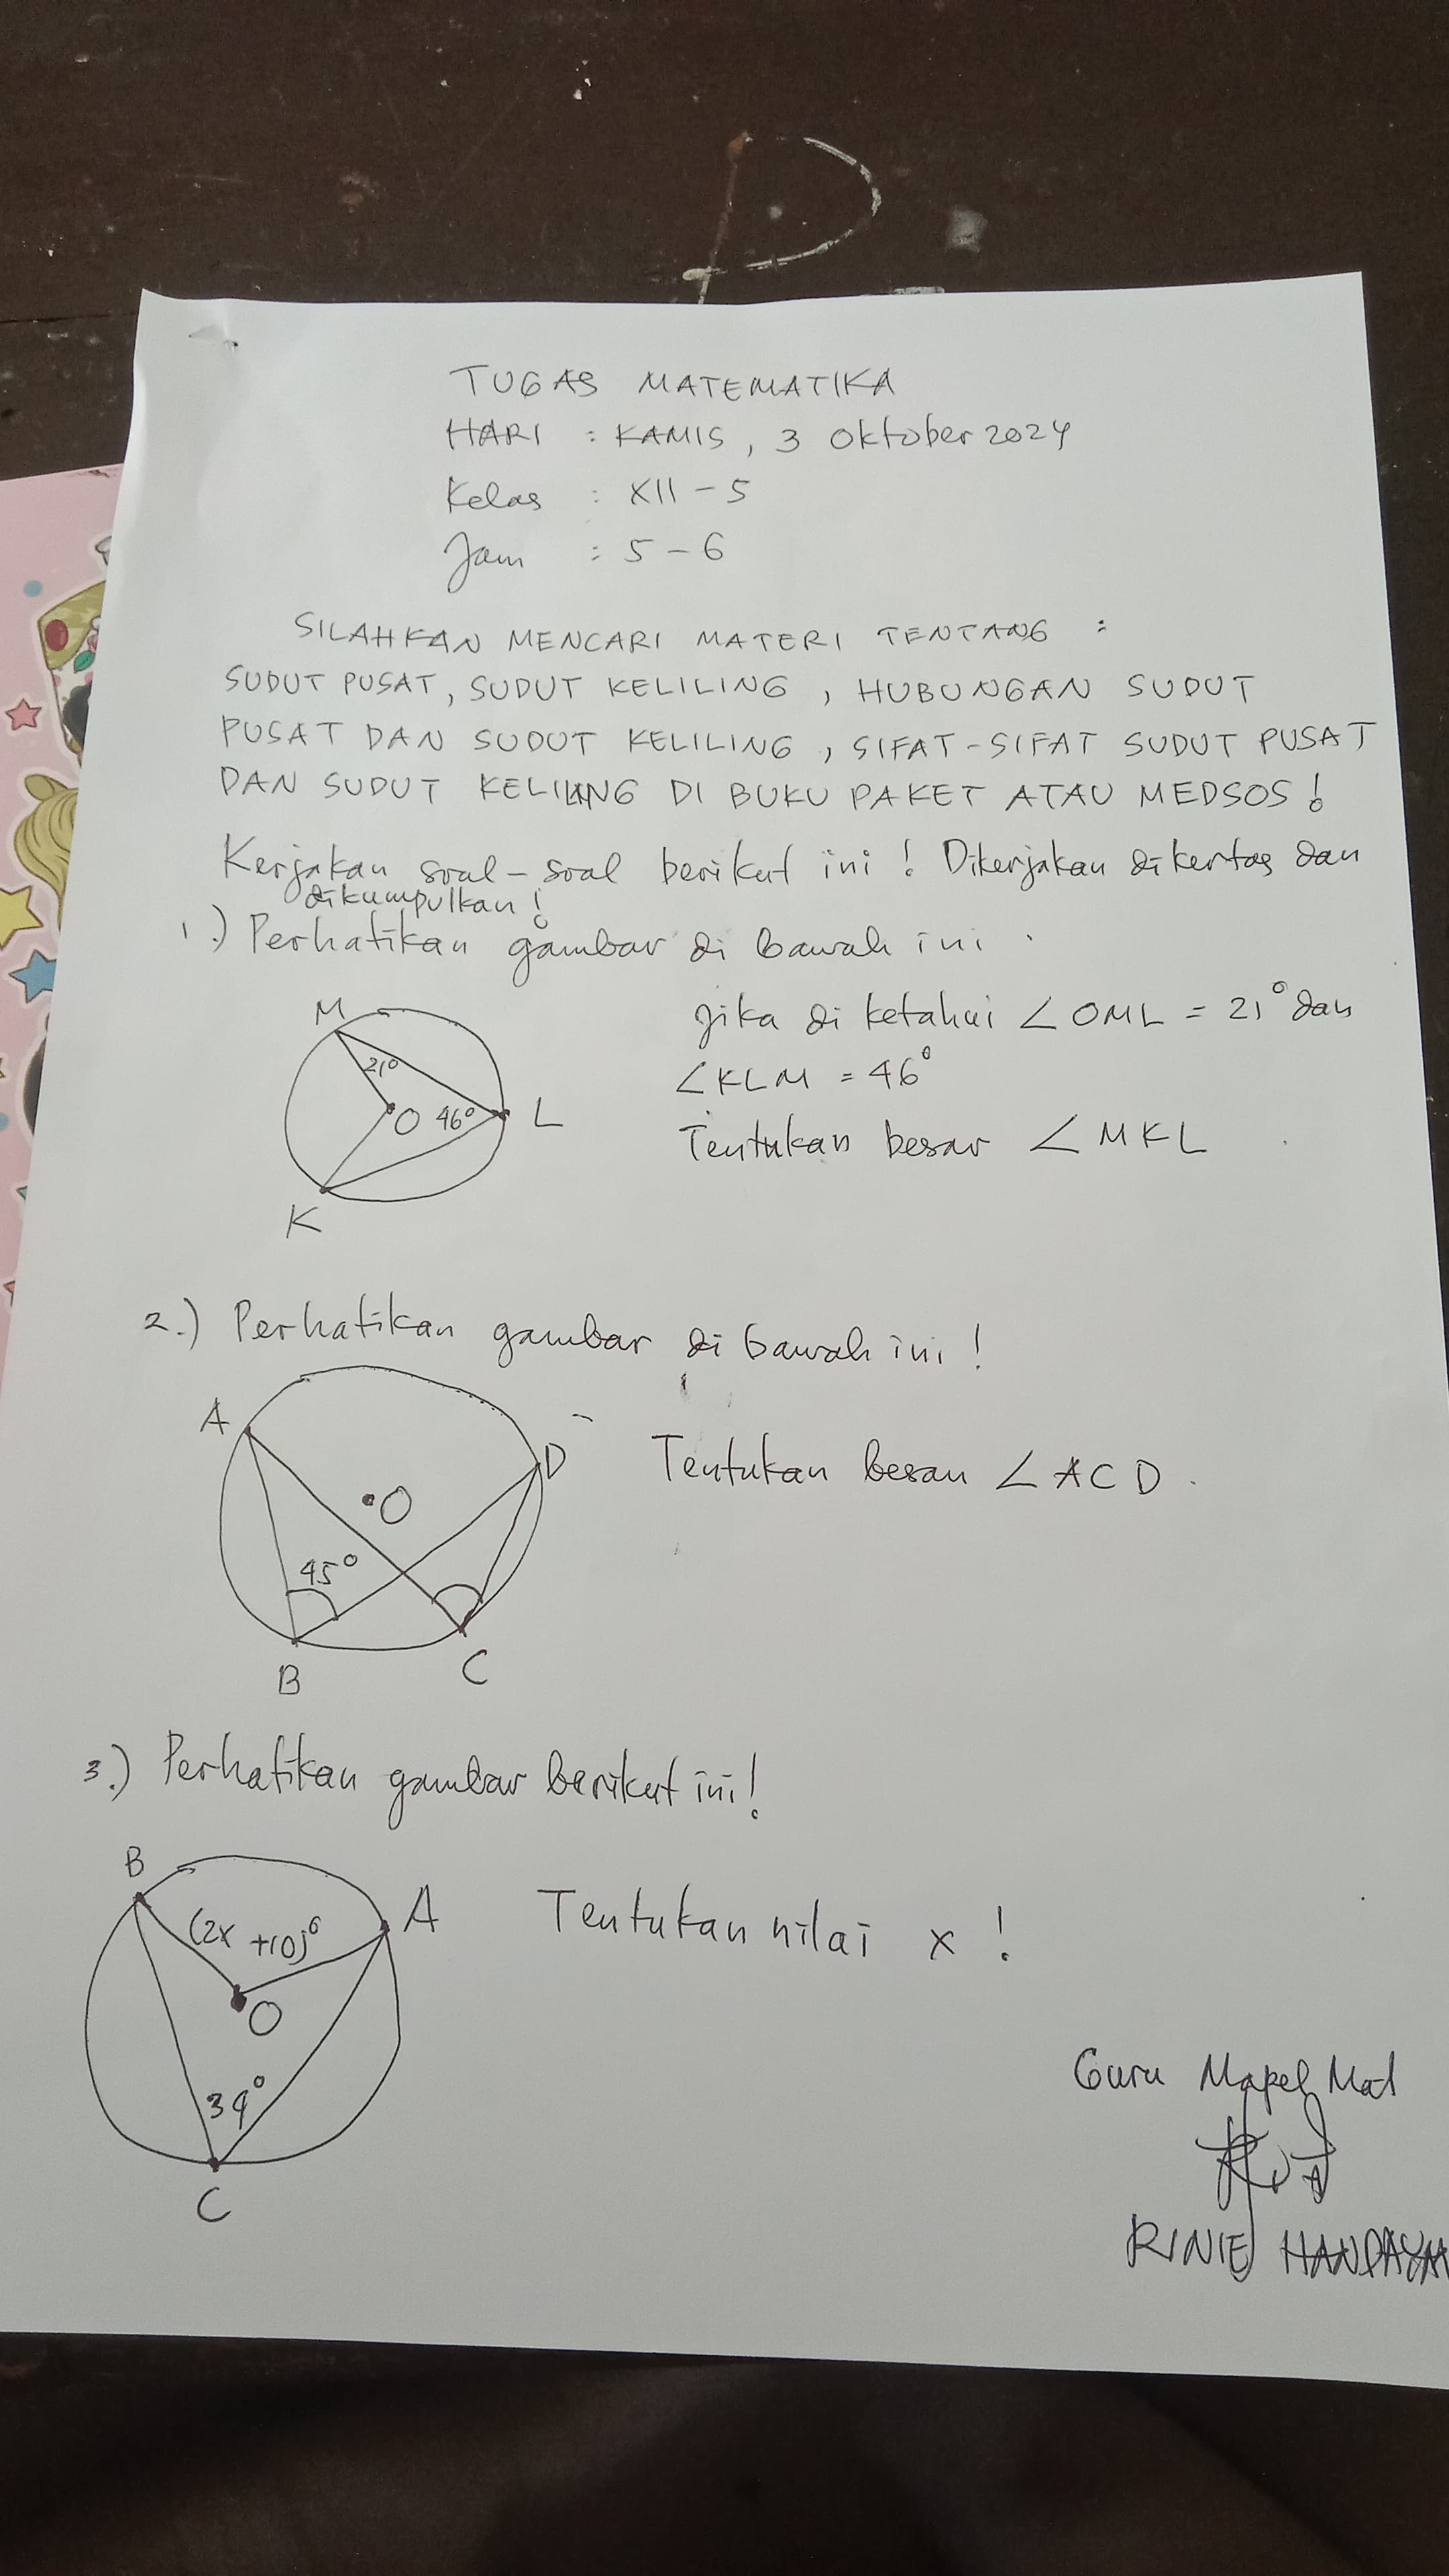 TUGAS MATEMATIKA
HARI : KAMIS, 3 Oktober 2024
Kelas : XII - 5
Jam : 5 - 6
SILAHKAN MENCARI MATERI TENTANG :
SUDUT PUSAT, SUDUT KELILING, HUBUNGAN SUDUT
PUSAT DAN SUDUT KELILING, SIFAT-SIFAT SUDUT PUSAT
DAN SUDUT KELILING DI BUKU PAKET ATAU MEDSOS!
Kerjakan soal-soal berikut ini! Dikerjakan dikertas dan
dikumpulkan!
1.) Perhatikan gambar di bawah ini.
M
21°
O 46° L
K
Jika di ketahui ∠OML = 21° dan
∠KLM = 46°
Tentukan besar ∠MKL
2.) Perhatikan gambar di bawah ini!
A
D
O
45°
B
C
Tentukan besar ∠ACD.
3.) Perhatikan gambar berikut ini!
B
(2x+10)°
A
O
39°
C
Tentukan nilai x!
Guru Mapel Mat
RINIE